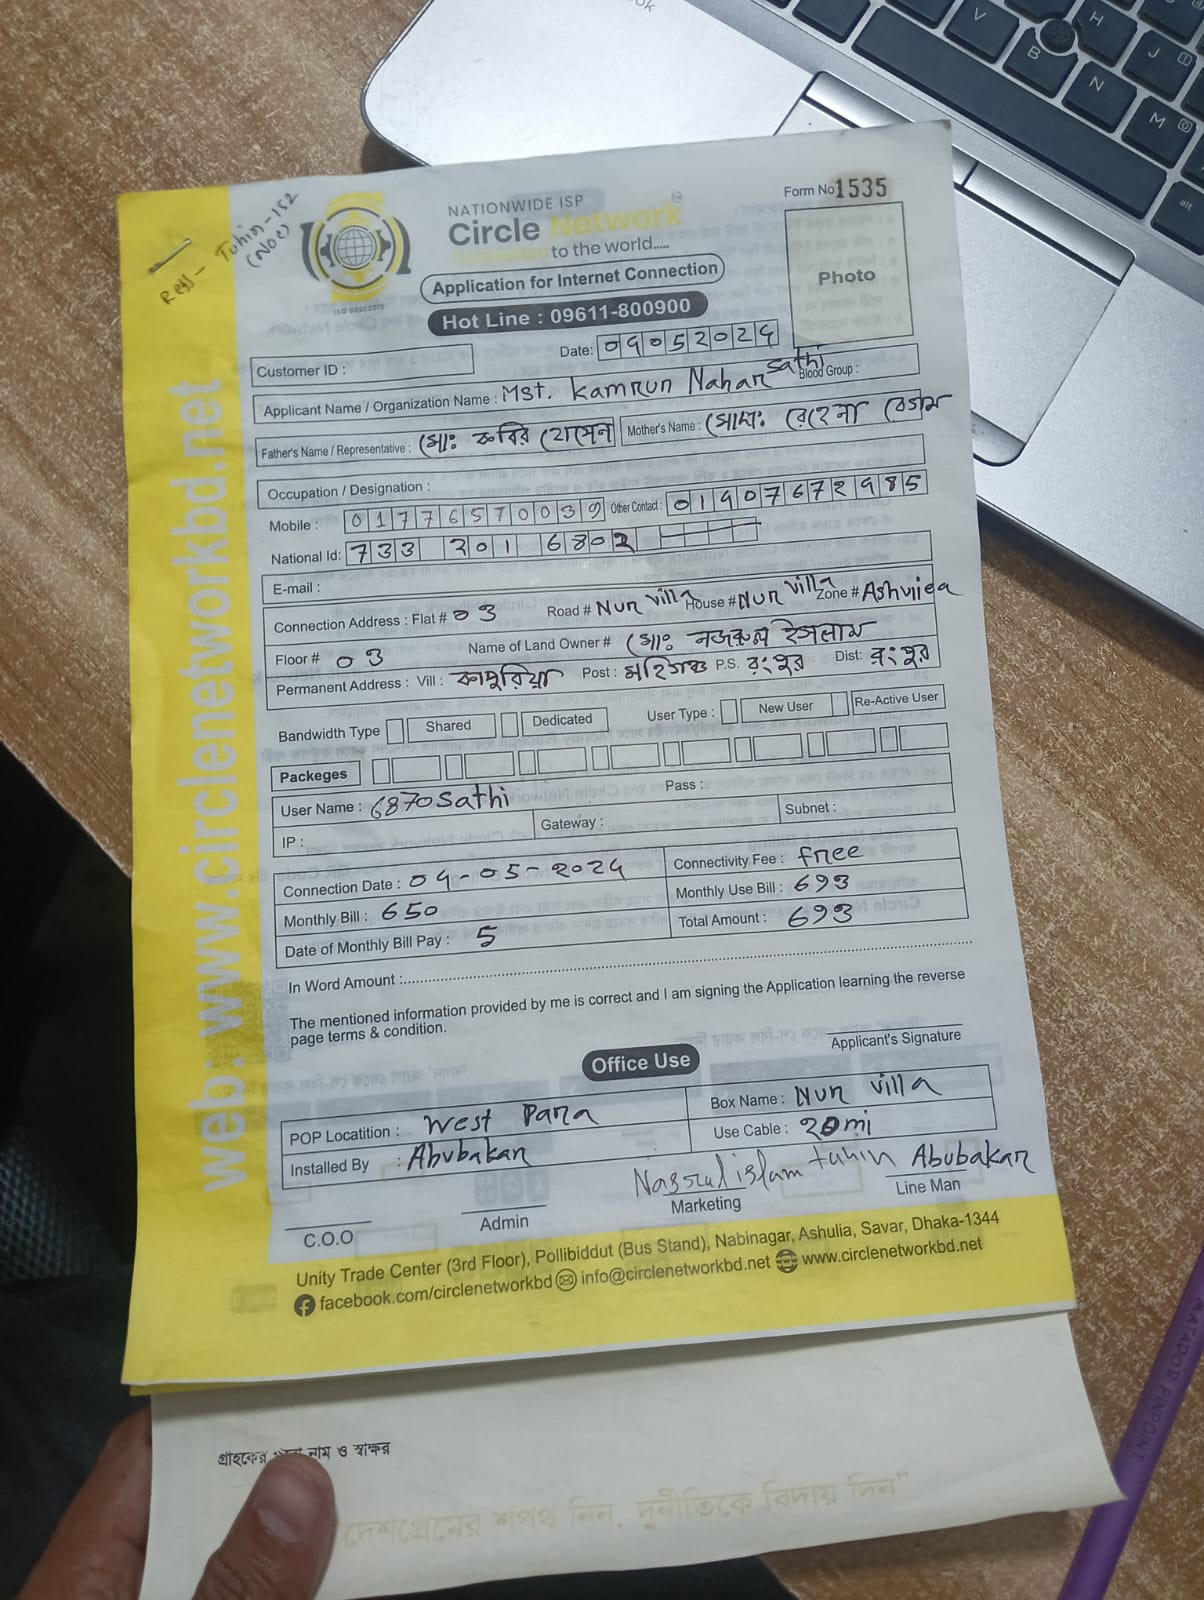 Reff - Tuhin-152
(NOC)
NATIONWIDE ISP
Circle Network
to the world.....
ISO 9001:2015
Application for Internet Connection
Hot Line : 09611-800900
Form No 1535
Photo
Date: 04052024
Customer ID :
Applicant Name / Organization Name : Mst. Kamrun Nahar Sathi Blood Group :
Father's Name / Representative : মোঃ কবির হোসেন Mother's Name : মোছাঃ রেহেনা বেগম
Occupation / Designation :
Mobile : 01776570039 Other Contact : 01907672985
National Id: 733 201 6802
E-mail :
Connection Address : Flat # 03 Road # Nur villa House # Nur villa Zone #
Floor # 03 Name of Land Owner # মোঃ নজরুল ইসলাম
Permanent Address : Vill : Post : P.S. রংপুর Dist: রংপুর
Bandwidth Type Shared Dedicated User Type : New User Re-Active User
Packeges
User Name : 6870sathi Pass :
IP : Gateway : Subnet :
Connection Date : 04-05-2024 Connectivity Fee : free
Monthly Bill : 650 Monthly Use Bill : 693
Date of Monthly Bill Pay : 5 Total Amount : 693
In Word Amount :
The mentioned information provided by me is correct and I am signing the Application learning the reverse
page terms & condition.
Applicant's Signature
Office Use
POP Locatition : West Para Box Name : Nur villa
Installed By : Abubakar Use Cable : 20mi
Nazrul islam tuhin Abubakar
C.O.O Admin Marketing Line Man
Unity Trade Center (3rd Floor), Pollibiddut (Bus Stand), Nabinagar, Ashulia, Savar, Dhaka-1344
facebook.com/circlenetworkbd info@circlenetworkbd.net www.circlenetworkbd.net
web: www.circlenetworkbd.net
গ্রাহকের নাম ও স্বাক্ষর
দেশপ্রেমের শপথ নিন, দুর্নীতিকে বিদায় দিন"
MATADOR PINPOINT